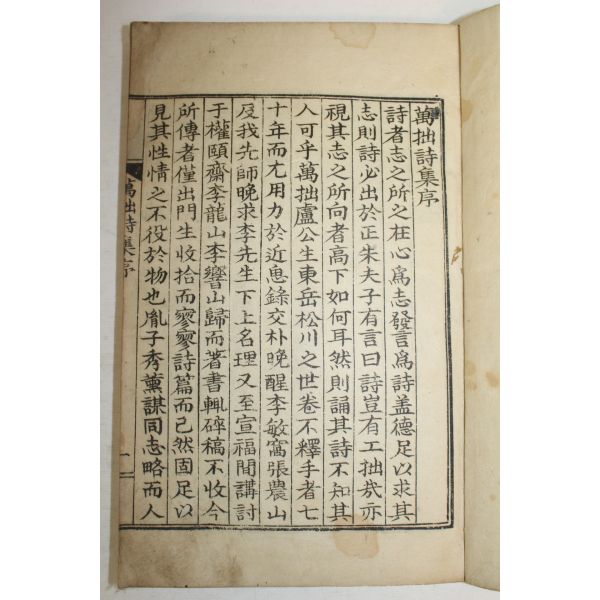 萬拙詩集序
詩者志之所之在心爲志發言爲詩盖德足以求其
志則詩必出於正朱夫子有言曰詩豈有工拙哉亦
視其志之所向者高下如何耳然則誦其詩不知其
人可乎萬拙盧公生東岳松川之世卷不釋手者七
十年而尤用力於近思錄交朴晩醒李敏窩張農山
及我先師晩求李先生下上名理又至宣福間講討
于權頤齋李龍山李響山歸而著書輒碎稿不收今
所傳者僅出門生收拾而寥寥詩篇而已然固足以
見其性情之不役於物也胤子秀薰謀同志略而入
萬拙詩集序
一